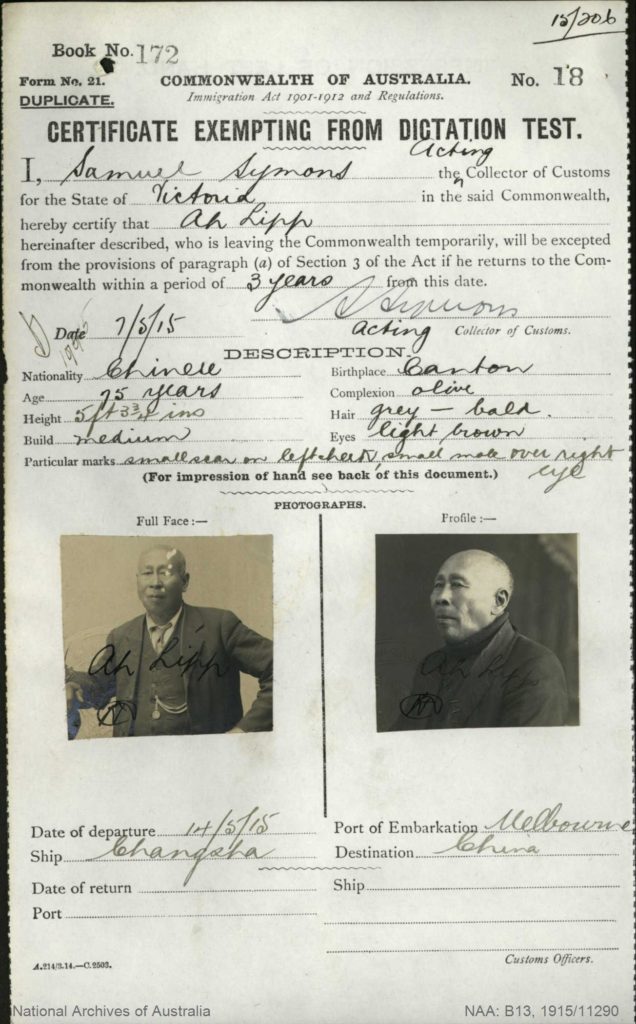 15/206
Book No. 172
Form No. 21. COMMONWEALTH OF AUSTRALIA. No. 18
DUPLICATE. Immigration Act 1901-1912 and Regulations.
CERTIFICATE EXEMPTING FROM DICTATION TEST.
I, Samuel Symons the Acting Collector of Customs
for the State of Victoria in the said Commonwealth,
hereby certify that Ah Lipp
hereinafter described, who is leaving the Commonwealth temporarily, will be excepted
from the provisions of paragraph (a) of Section 3 of the Act if he returns to the Com-
monwealth within a period of 3 years from this date.
S Symons
Date 7/5/15 Acting Collector of Customs.
DESCRIPTION.
Nationality Chinese Birthplace Canton
Age 75 years Complexion olive
Height 5ft 3¾ ins Hair grey – bald.
Build medium Eyes light brown
Particular marks small scar on left cheek, small mole over right
eye
(For impression of hand see back of this document.)
PHOTOGRAPHS.
Full Face :— Profile :—
Ah Lipp Ah Lipp
Date of departure 14/5/15 Port of Embarkation Melbourne
Ship Changsha Destination China
Date of return Ship
Port
A.214/3.14.—C.2503. Customs Officers.
National Archives of Australia NAA: B13, 1915/11290